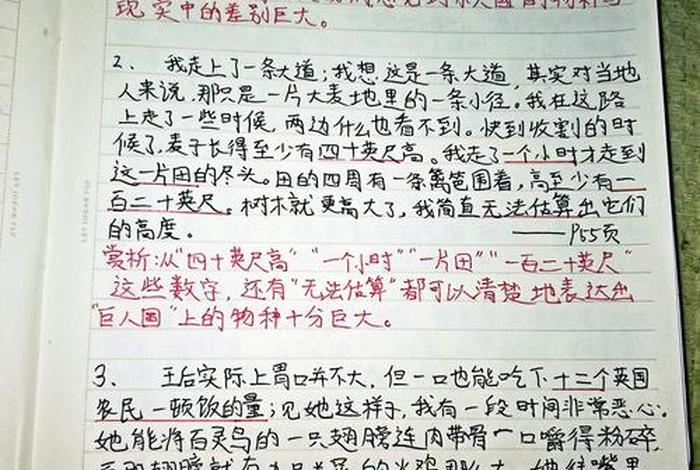 现实中的差别巨大。
2. 我走上了一条大道；我想这是一条大道，其实对当地
人来说，那只是一片大麦地里的一条小径。我在这路
上走了一些时候，两边什么也看不到。快到收割的时
候了，麦子长得至少有四十英尺高。我走了一个小时才走到
这一片田的尽头。田的四周有一条篱笆围着，高至少有一
百二十英尺。树木就更高大了，我简直无法估算出它们
的高度。 ——P55页
赏析：从"四十英尺高""一个小时""一片田""一百二十英尺"
这些数字，还有"无法估算"都可以清楚地表达出
"巨人国"上的物种十分巨大。
3. 王后实际上胃口并不大，但一口也能吃下十二个英国
农民一顿饭的量；见她这样子，我有一段时间非常恶心。
她能将百灵鸟的一只翅膀连肉带骨一口嚼得粉碎，